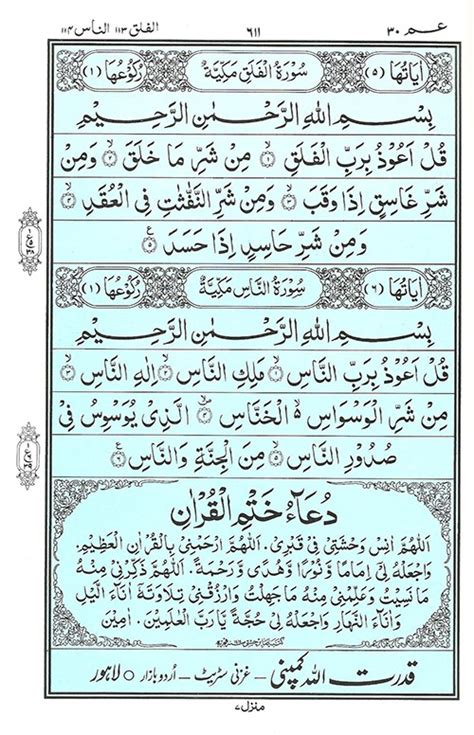 عـم ٣٠ ٦١١ الفلق ١١٣ الناس ١١٤
اٰيَاتُهَا (٥) سُوْرَةُ الْفَلَقِ مَكِّيَّةٌ رُكُوْعُهَا (١)
بِسْمِ اللهِ الرَّحْمٰنِ الرَّحِيْمِ
قُلْ اَعُوْذُ بِرَبِّ الْفَلَقِ ۙ﴿١﴾ مِنْ شَرِّ مَا خَلَقَ ۙ﴿٢﴾ وَمِنْ
شَرِّ غَاسِقٍ اِذَا وَقَبَ ۙ﴿٣﴾ وَمِنْ شَرِّ النَّفّٰثٰتِ فِى الْعُقَدِ ۙ﴿٤﴾
وَمِنْ شَرِّ حَاسِدٍ اِذَا حَسَدَ ﴿٥﴾
اٰيَاتُهَا (٦) سُوْرَةُ النَّاسِ مَكِّيَّةٌ رُكُوْعُهَا (١)
بِسْمِ اللهِ الرَّحْمٰنِ الرَّحِيْمِ
قُلْ اَعُوْذُ بِرَبِّ النَّاسِ ۙ﴿١﴾ مَلِكِ النَّاسِ ۙ﴿٢﴾ اِلٰهِ النَّاسِ ۙ﴿٣﴾
مِنْ شَرِّ الْوَسْوَاسِ ۙ الْخَنَّاسِ ۙ﴿٤﴾ الَّذِىْ يُوَسْوِسُ فِىْ
صُدُوْرِ النَّاسِ ۙ﴿٥﴾ مِنَ الْجِنَّةِ وَالنَّاسِ ﴿٦﴾
دُعَآءُ خَتْمِ الْقُرْاٰنِ
اَللّٰهُمَّ اٰنِسْ وَحْشَتِىْ فِىْ قَبْرِىْ. اَللّٰهُمَّ ارْحَمْنِىْ بِالْقُرْاٰنِ الْعَظِيْمِ.
وَاجْعَلْهُ لِىْ اِمَامًا وَّ نُوْرًا وَّ هُدًى وَّ رَحْمَةً. اَللّٰهُمَّ ذَكِّرْنِىْ مِنْهُ
مَا نَسِيْتُ وَعَلِّمْنِىْ مِنْهُ مَا جَهِلْتُ وَارْزُقْنِىْ تِلَاوَتَهٗ اٰنَآءَ الَّيْلِ
وَ اٰنَآءَ النَّهَارِ وَاجْعَلْهُ لِىْ حُجَّةً يَّارَبَّ الْعٰلَمِيْنَ. اٰمِيْن
قدرت اللہ کمپنی – غزنی سٹریٹ – اُردو بازار ○ لاہور
منزل ٧